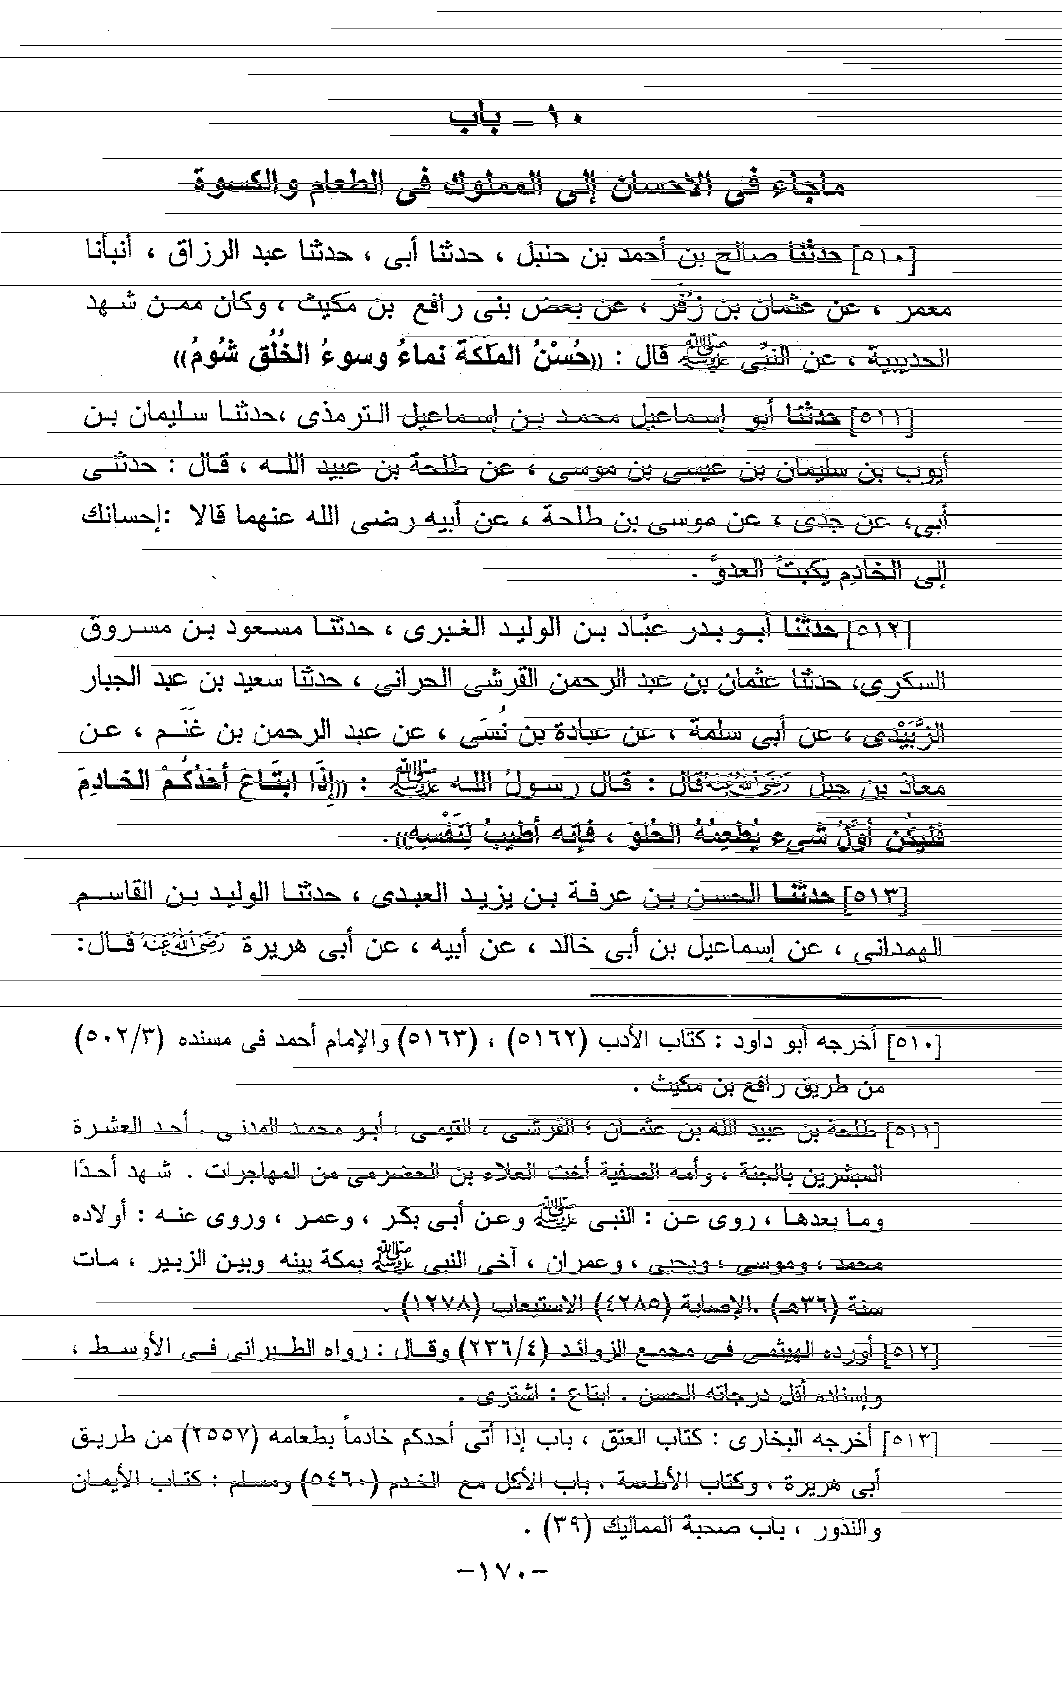 ١٠ – باب
ماجاء فى الاحسان إلى المملوك فى الطعام والكسوة
[٥١٠] حدثنا صالح بن أحمد بن حنبل ، حدثنا أبى ، حدثنا عبد الرزاق ، أنبأنا
معمر ، عن عثمان بن زُفَر ، عن بعض بنى رافع بن مكيث ، وكان ممن شهد
الحديبية ، عن النبى ﷺ قال : «حُسْنُ المَلَكَة نماءُ وسوءُ الخُلُق شُومُ»
[٥١١] حدثنا أبو إسماعيل محمد بن إسماعيل الترمذى ،حدثنا سليمان بن
أيوب بن سليمان بن عيسى بن موسى ، عن طلحة بن عبيد الله ، قال : حدثنى
أبى، عن جدى ، عن موسى بن طلحة ، عن أبيه رضى الله عنهما قالا :إحسانك
إلى الخادِم يكبتُ العدوَّ .
[٥١٢] حدثنا أبو بدر عبَّاد بن الوليد الغبرى ، حدثنا مسعود بن مسروق
السكرى، حدثنا عثمان بن عبد الرحمن القرشى الحرانى ، حدثنا سعيد بن عبد الجبار
الزُّبَيْدى ، عن أبى سلمة ، عن عبادة بن نُسَى ، عن عبد الرحمن بن غَنَم ، عن
معاذ بن جبل رَضِيَ اللهُ عَنْهُ قال : قال رسولُ الله ﷺ : «إِذَا ابتَاعَ أَحَدُكُمْ الخادِمَ
فَلْيَكُن أوَّلُ شىء يُطْعِمُهُ الحُلوَ ، فإنه أطيبُ لِنَفْسِهِ».
[٥١٣] حدثنا الحسن بن عرفة بن يزيد العبدى ، حدثنا الوليد بن القاسم
الهمدانى ، عن إسماعيل بن أبى خالد ، عن أبيه ، عن أبى هريرة رَضِيَ اللهُ عَنْهُ قال:
[٥١٠] أخرجه أبو داود : كتاب الأدب (٥١٦٢) ، (٥١٦٣) والإمام أحمد فى مسنده (٥٠٢/٣)
من طريق رافع بن مكيث .
[٥١١] طلحة بن عبيد الله بن عثمان ، القرشى ، التيمى ، أبو محمد المدنى . أحد العشرة
المبشرين بالجنة ، وأمه الصفية أخت العلاء بن الحضرمى من المهاجرات . شهد أحدًا
وما بعدها ، روى عن : النبى ﷺ وعن أبى بكر ، وعمر ، وروى عنه : أولاده
محمد ، وموسى ، ويحيى ، وعمران ، آخى النبى ﷺ بمكة بينه وبين الزبير ، مات
سنة (٣٦هـ) .الإصابة (٤٢٨٥) الاستيعاب (١٢٧٨) .
[٥١٢] أورده الهيثمى فى مجمع الزوائد (٢٣٦/٤) وقال : رواه الطبرانى فى الأوسط ،
وإسناده أقل درجاته الحسن . ابتاع : اشترى .
[٥١٣] أخرجه البخارى : كتاب العتق ، باب إذا أتى أحدكم خادماً بطعامه (٢٥٥٧) من طريق
أبى هريرة ، وكتاب الأطعمة ، باب الأكل مع الخدم (٥٤٦٠) ومسلم : كتاب الأيمان
والنذور ، باب صحبة المماليك (٣٩) .
-١٧٠-